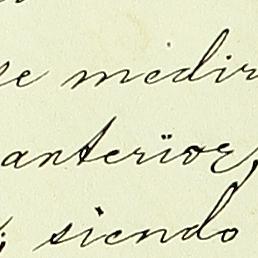 se medir
anterior,
; siendo